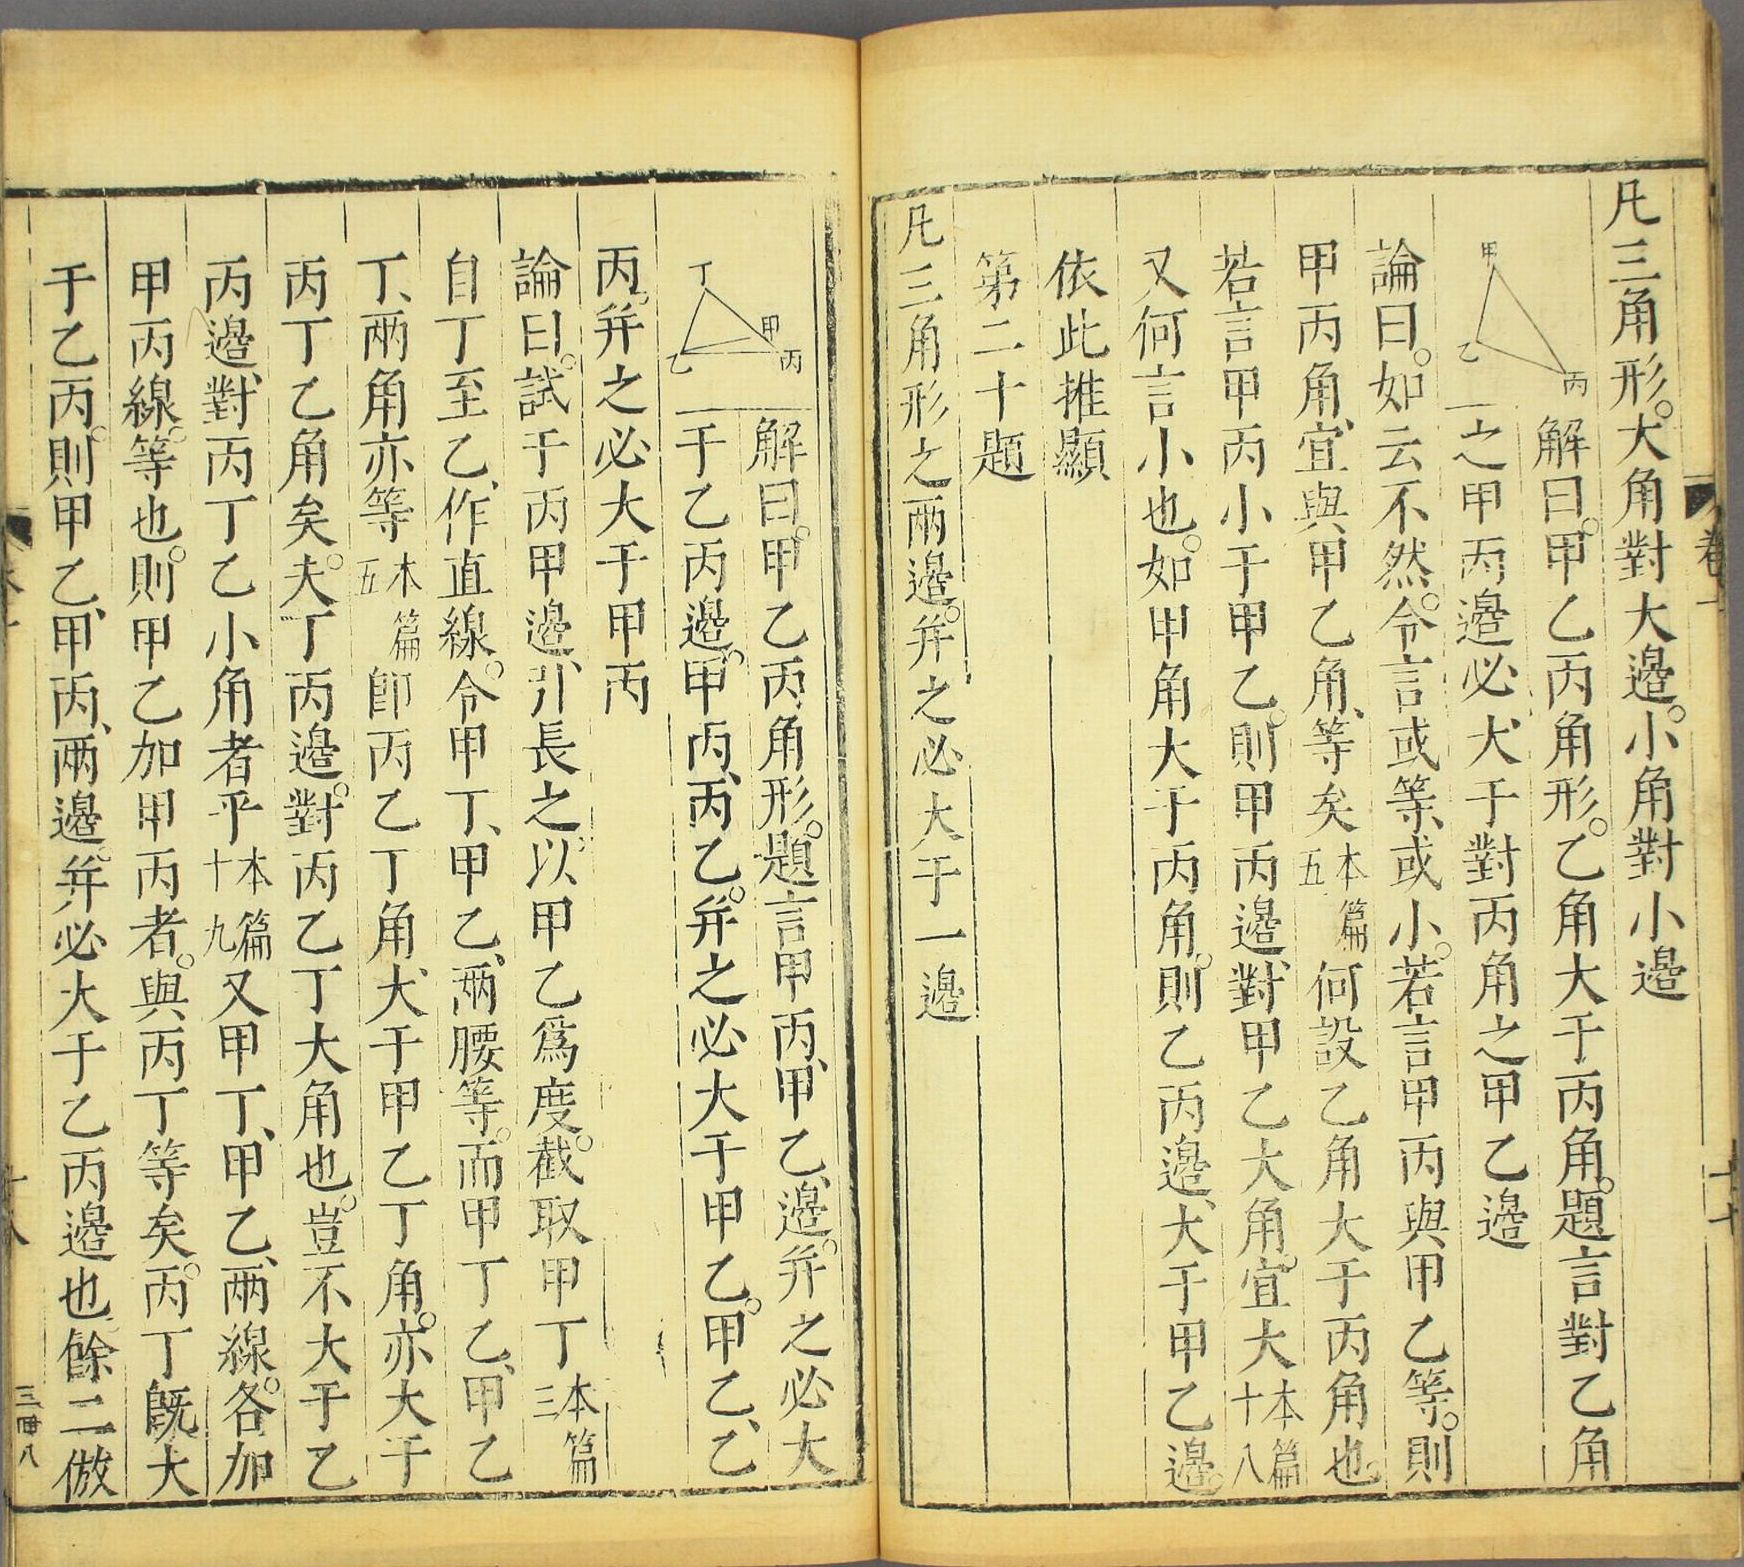 凡三角形。大角對大邊。小角對小邊
解曰。甲乙丙角形。乙角大于丙角。題言對乙角
之甲丙邊必大于對丙角之甲乙邊
甲
乙
丙
論曰。如云不然。令言或等、或小。若言甲丙與甲乙等。則
甲丙角、宜與甲乙角、等矣本篇五何設乙角大于丙角也。
若言甲丙小于甲乙。則甲丙邊、對甲乙大角。宜大本篇十八
又何言小也。如甲角大于丙角。則乙丙邊、大于甲乙邊。
依此推顯
第二十題
凡三角形之兩邊。并之必大于一邊
解曰。甲乙丙角形。題言甲丙、甲乙、邊。并之必大
于乙丙邊。甲丙、丙乙。并之必大于甲乙。甲乙、乙
丁
甲
乙
丙
丙。并之必大于甲丙
論曰。試于丙甲邊、引長之。以甲乙爲度。截取甲丁本篇三
自丁至乙、作直線。令甲丁、甲乙、兩腰等。而甲丁乙、甲乙
丁、兩角亦等本篇五卽丙乙丁角、大于甲乙丁角。亦大于
丙丁乙角矣。夫丁丙邊。對丙乙丁大角也。豈不大于乙
丙邊、對丙丁乙小角者乎本篇十九又甲丁、甲乙、兩線。各加
甲丙線。等也。則甲乙加甲丙者。與丙丁等矣。丙丁旣大
于乙丙。則甲乙、甲丙、兩邊。并必大于乙丙邊也。餘二倣
三冊八